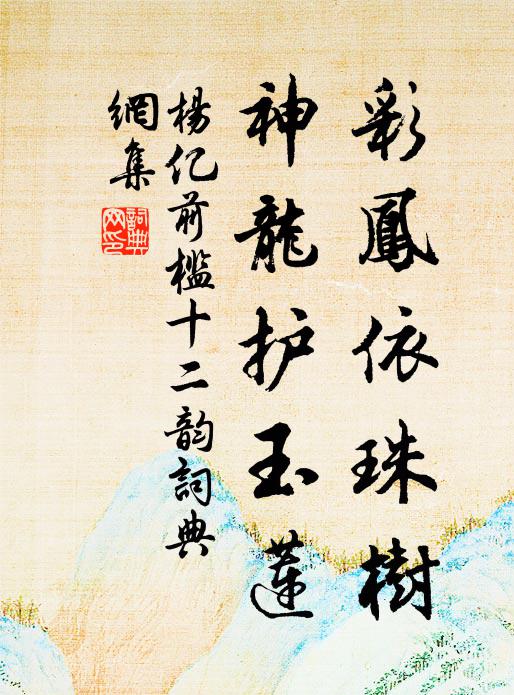 彩鳳依珠樹
神龍护玉蓮
楊亿前檻十二韵詞典
網集
詞典
网印